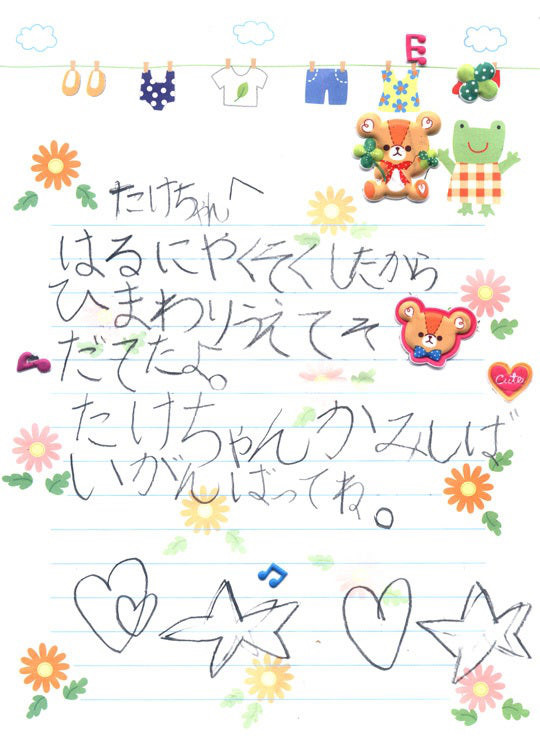 たけちゃんへ
はるにやくそくしたから
ひまわりうえてそ
だてたよ。
たけちゃんかみしば
いがんばってね。
Cute